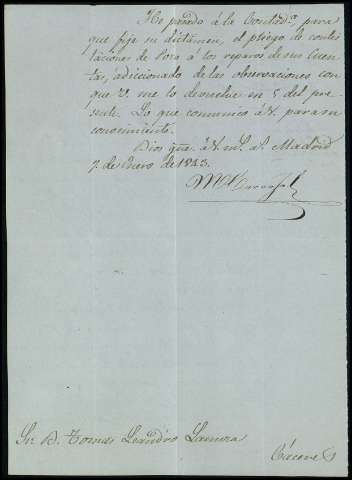 He pasado á la Contadª. para
que fije su dictámen, el pliego de contes
taciones de Rosa á los reparos de sus Cuen
tas, adiccionado de las observaciones con
que V. me lo devuelve en 5 del pre
sente. Lo que comunico á V. para su
conocimiento.
Dios gue. á V. ms. as. Madrid
7 de Enero de 1873.
Sr. D. Tomas Leandro
Cáceres